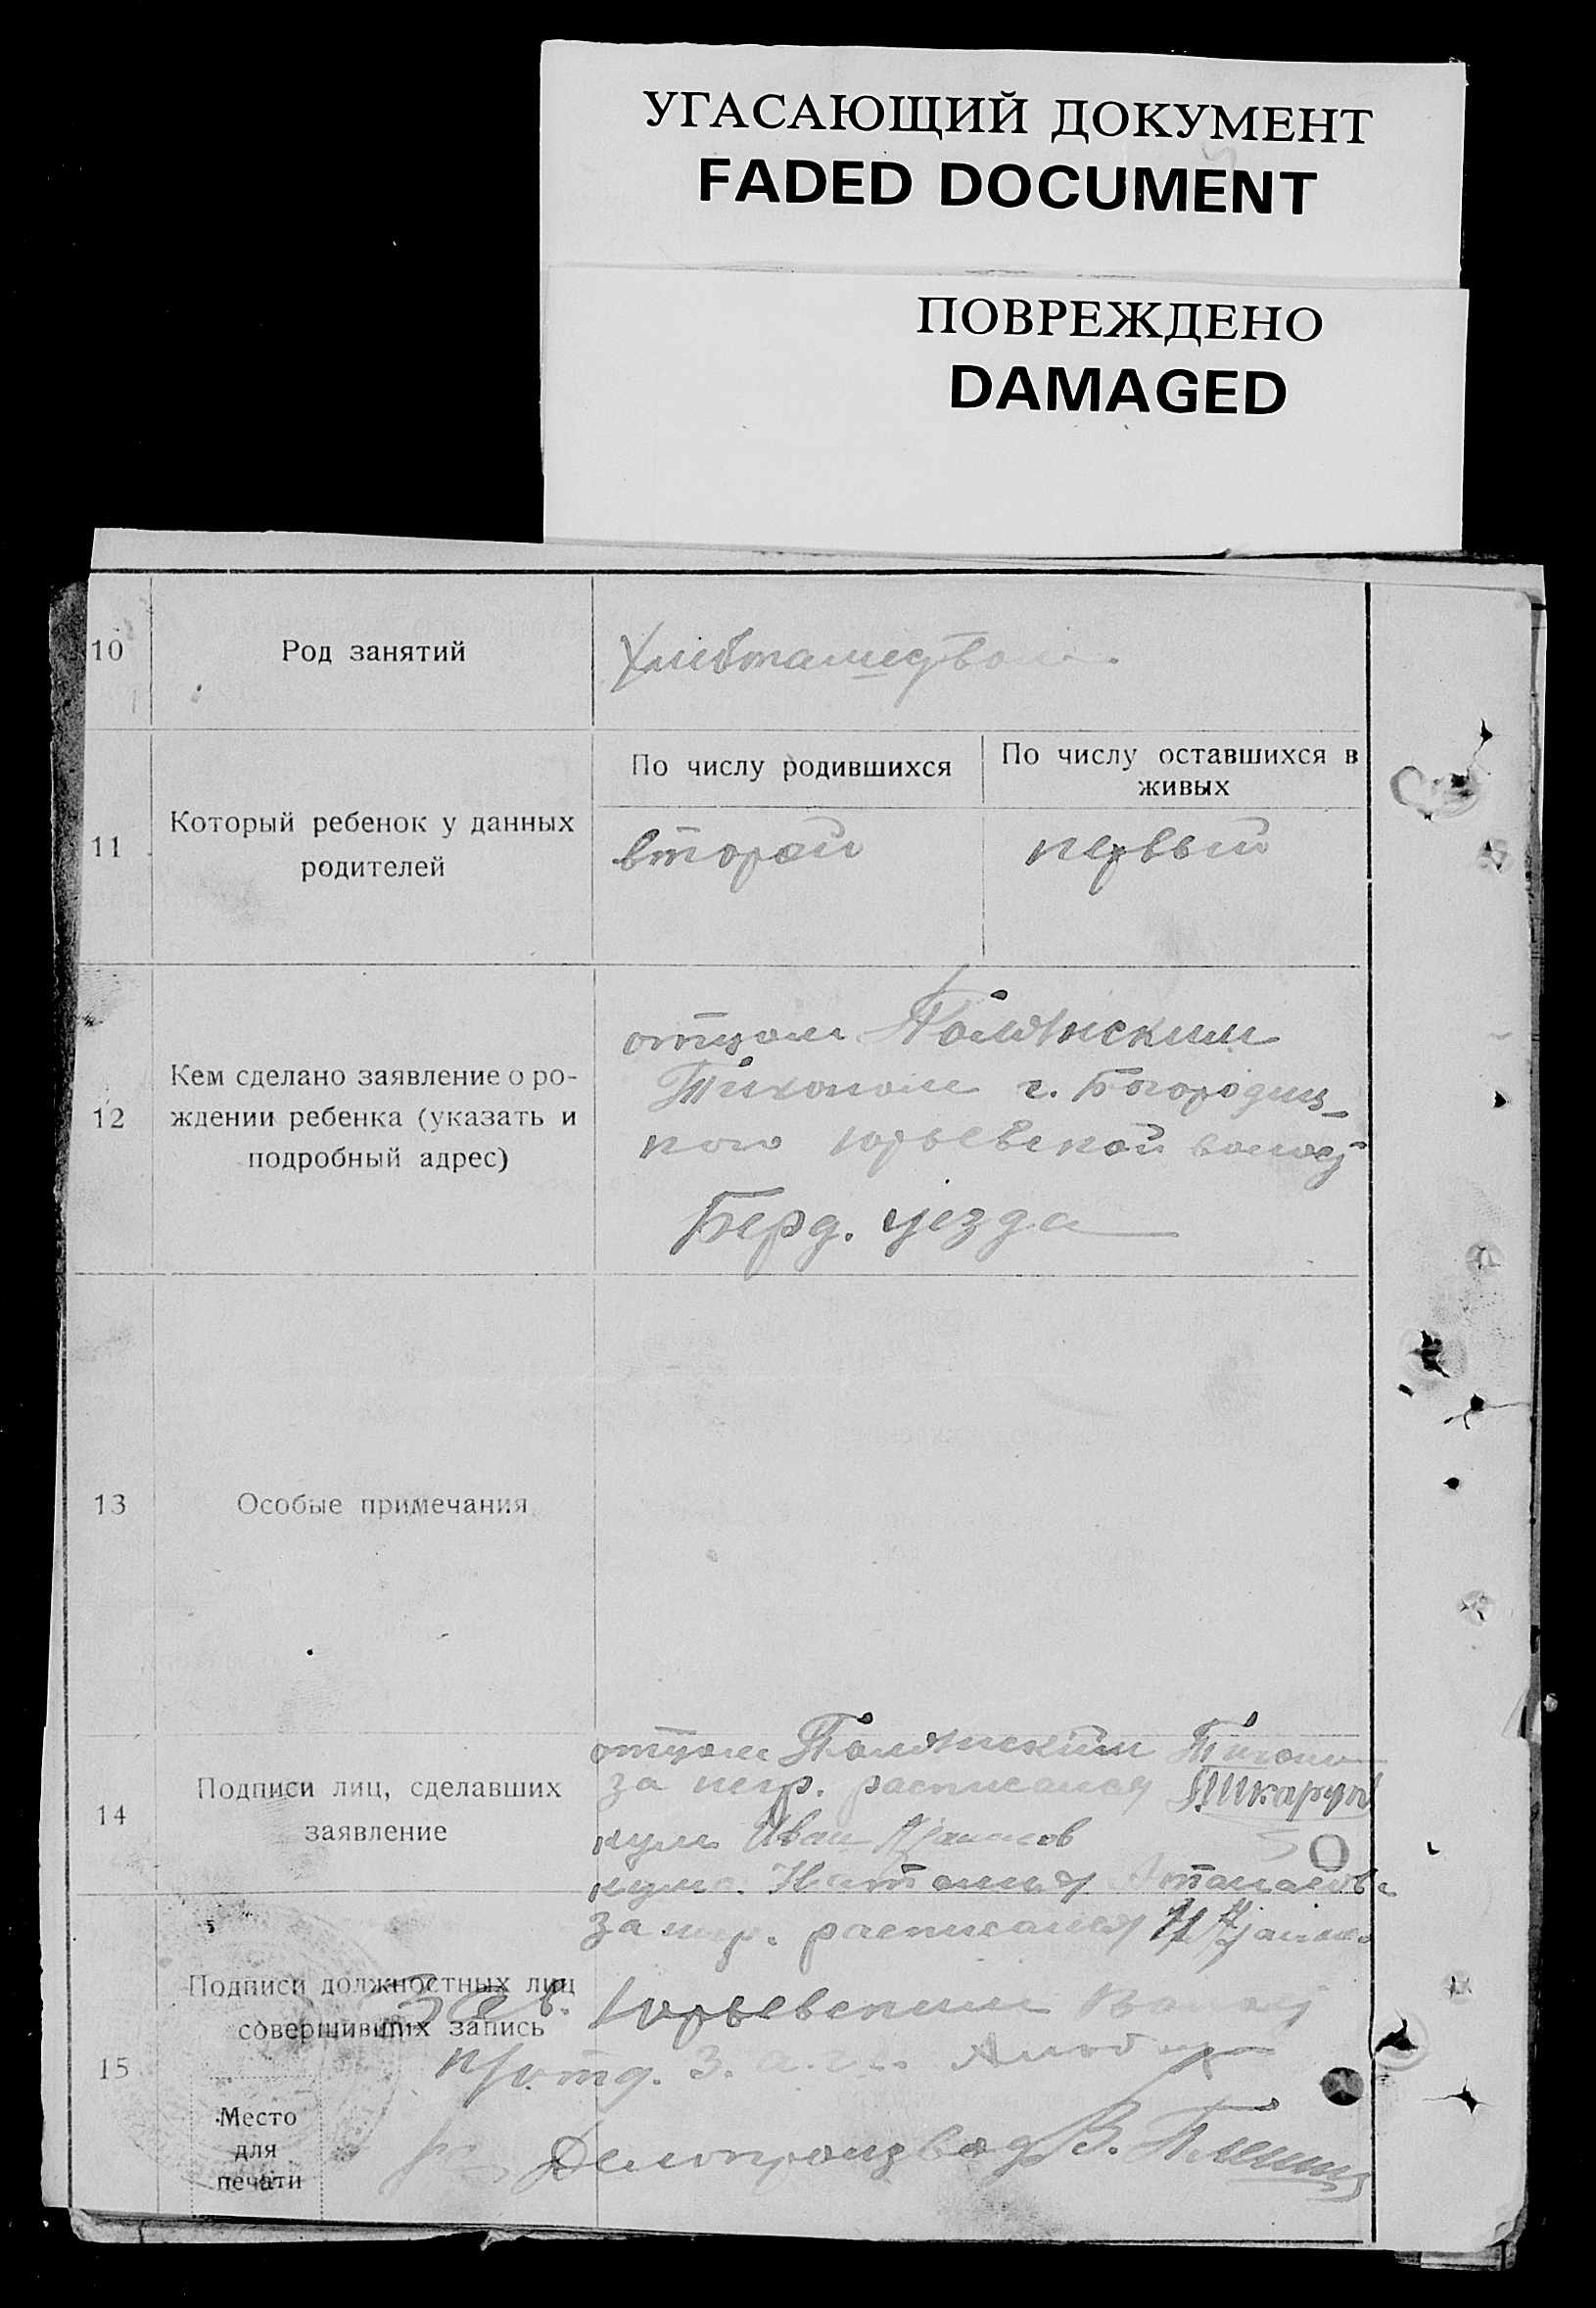 УГАСАЮЩИЙ ДОКУМЕНТ
FADED DOCUMENT
ПОВРЕЖДЕНО
DAMAGED
10
Род занятий
11
Который ребенок у данных
родителей
По числу родившихся
По числу оставшихся в
живых
второй
первый
12
Кем сделано заявление о ро-
ждении ребенка (указать и
подробный адрес)
отцом
Тихоном с. Богородиц-
кого Юрьевской волос
Берд. уезда
13
Особые примечания
14
Подписи лиц, сделавших
заявление
отцом Тихон
за негр. расписался
кум Иван
кума
за негр. расписался
15
Подписи должностных лиц
совершивших запись
Зав. Юрьевским
п/отд. З.
Место
для
печати
Делопроизвод В.